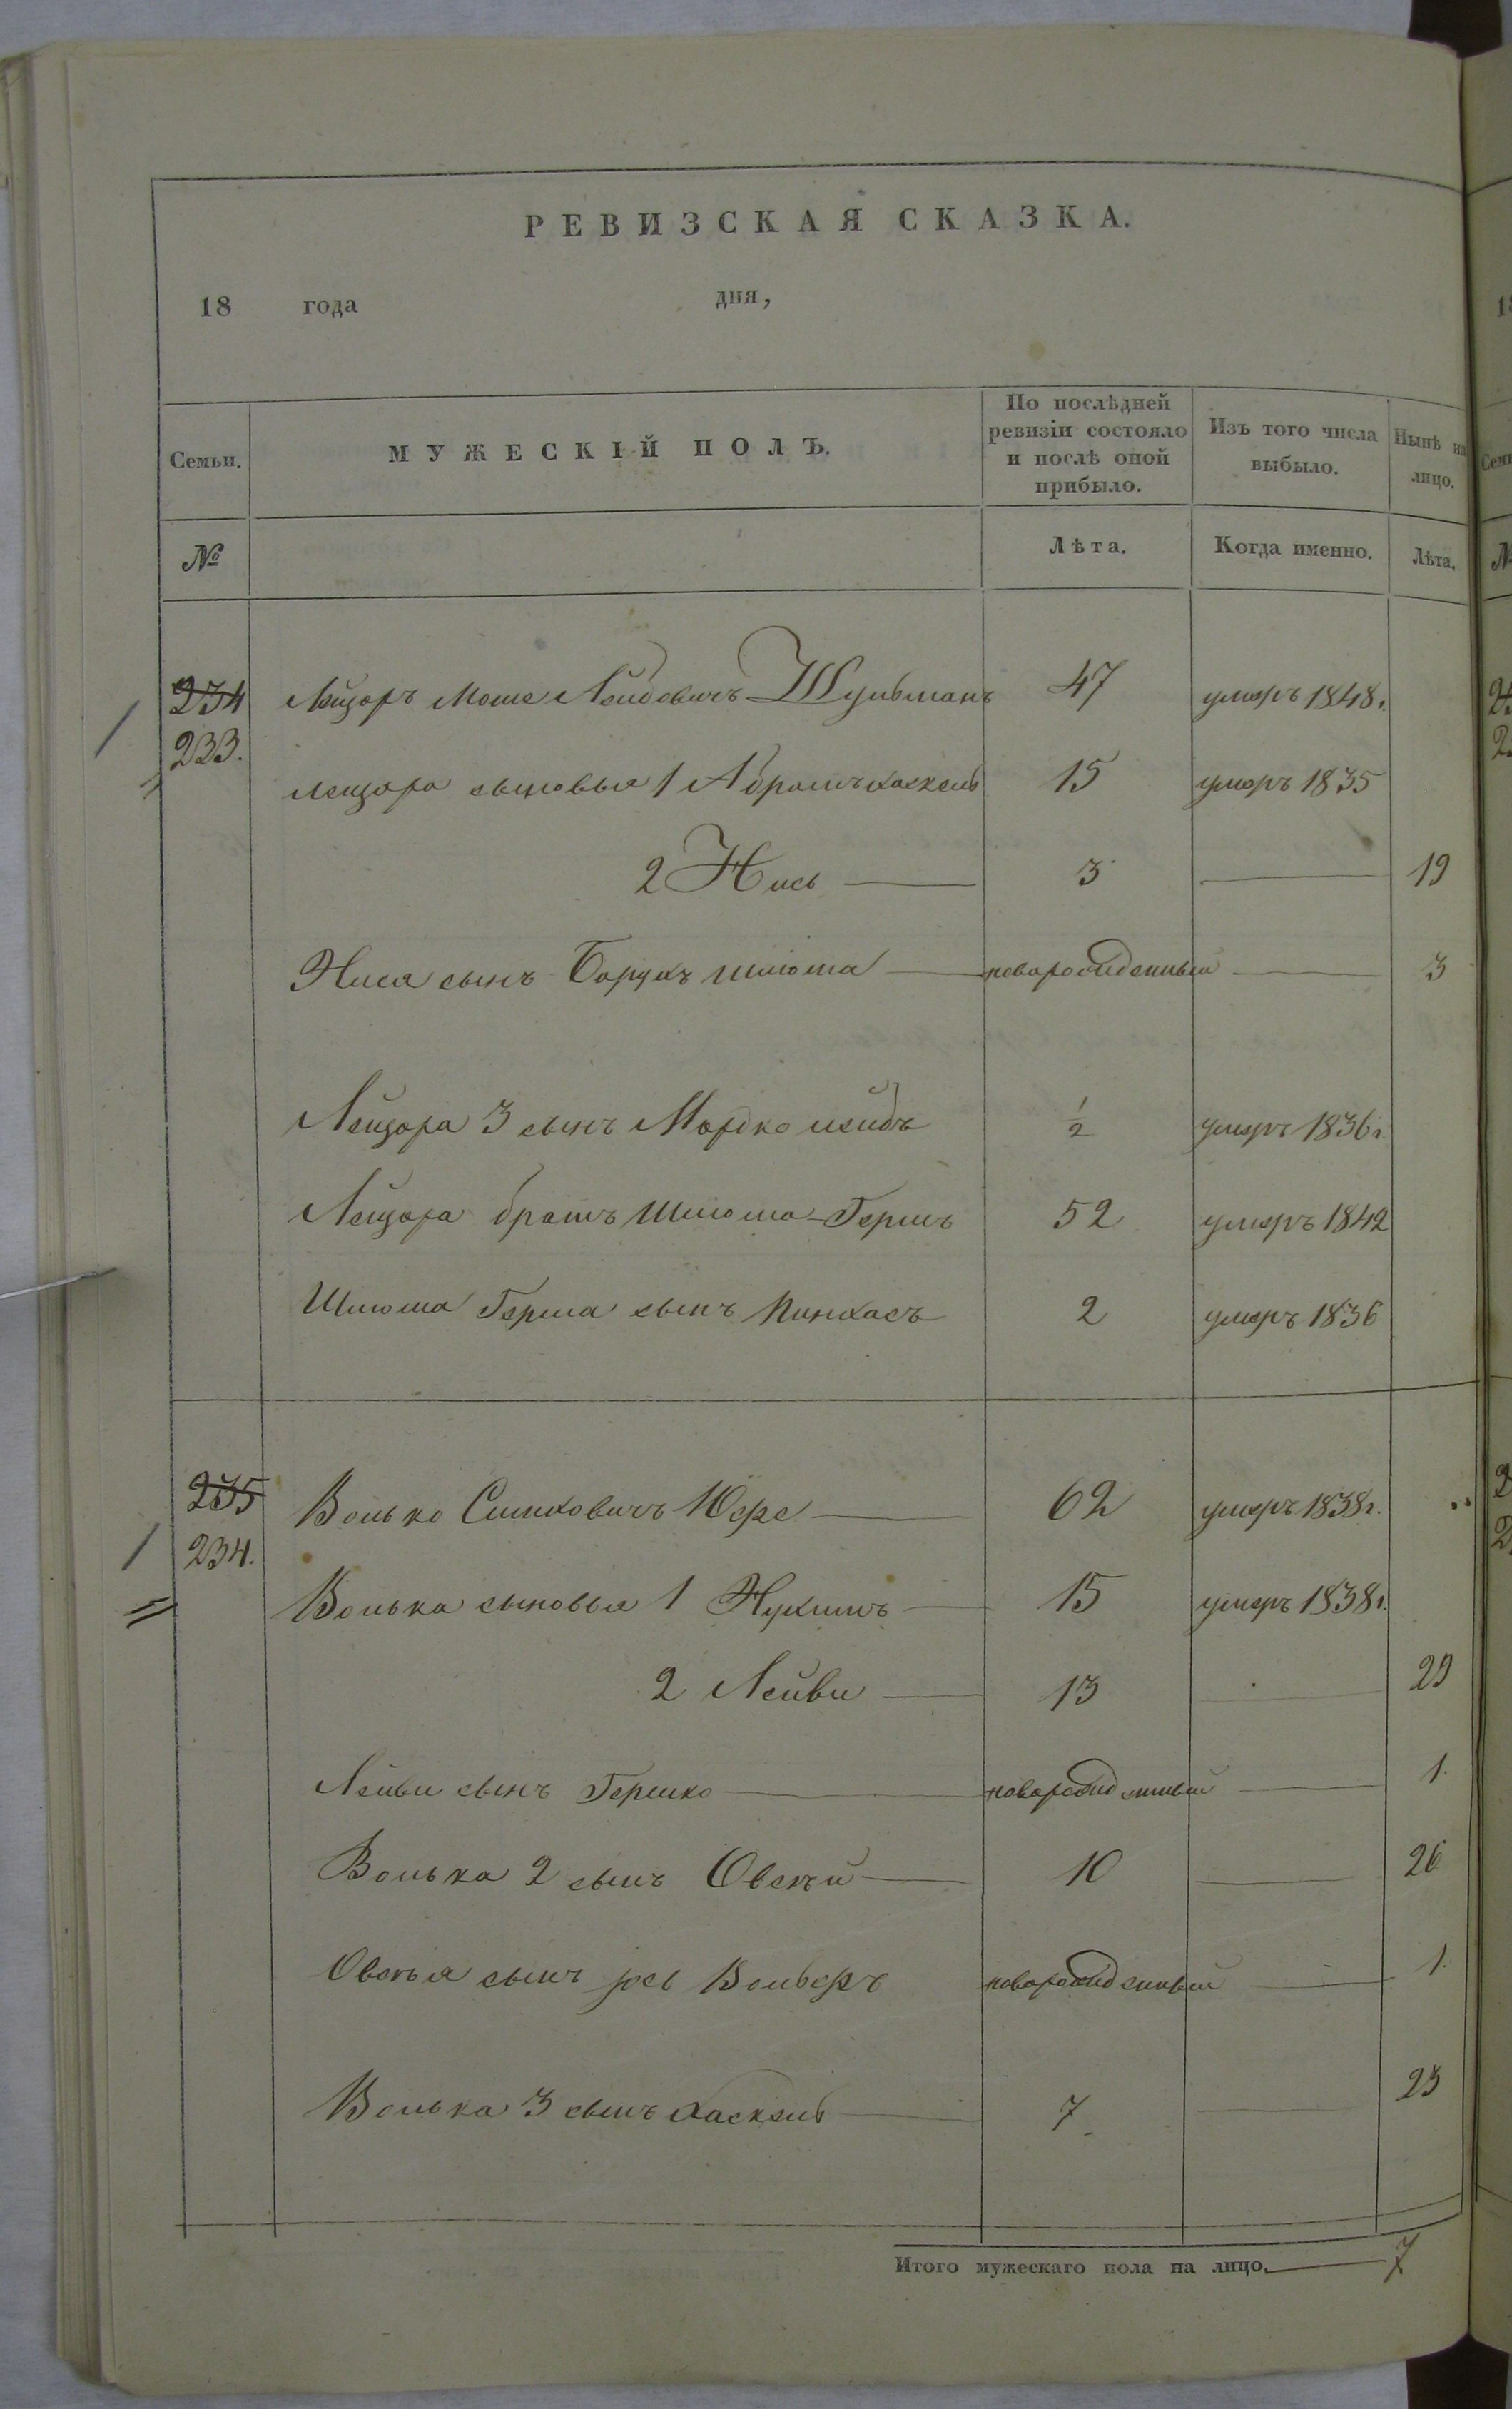 РЕВИЗСКАЯ СКАЗКА.
18 года дня,
Семьи. МУЖЕСКІЙ ПОЛЪ. По послѣдней ревизіи состояло и послѣ оной прибыло. Изъ того числа выбыло. Нынѣ на лицо.
№ Лѣта. Когда именно. Лѣта.
234 Лейзоръ Моше Лейбовичъ Шульманъ 47 умеръ 1848г.
233.
Лейзора сыновья 1 Абрамъ Хаскель 15 умеръ 1835
2 Нись 3 19
Нися сынъ Борухъ Шлома новорожденный 3
Лейзора 3 сынъ Мордко Лейбъ 1/2 умеръ 1836г.
Лейзора братъ Шлома-Гершъ 52 умеръ 1842
Шлома Герша сынъ Пинхасъ 2 умеръ 1836
235 Волько Симховичъ 62 умеръ 1838г.
234.
Волька сыновья 1 Нухимъ 15 умеръ 1838г.
2 Лейви 13 29
Лейви сынъ Гершко новорожденный 1.
Волька 2 сынъ Овсѣй 10 26
Овсѣя сынъ Іось Вольфъ новорожденный 1.
Волька 3 сынъ Хаскель 7 23
Итого мужескаго пола на лицо. 7